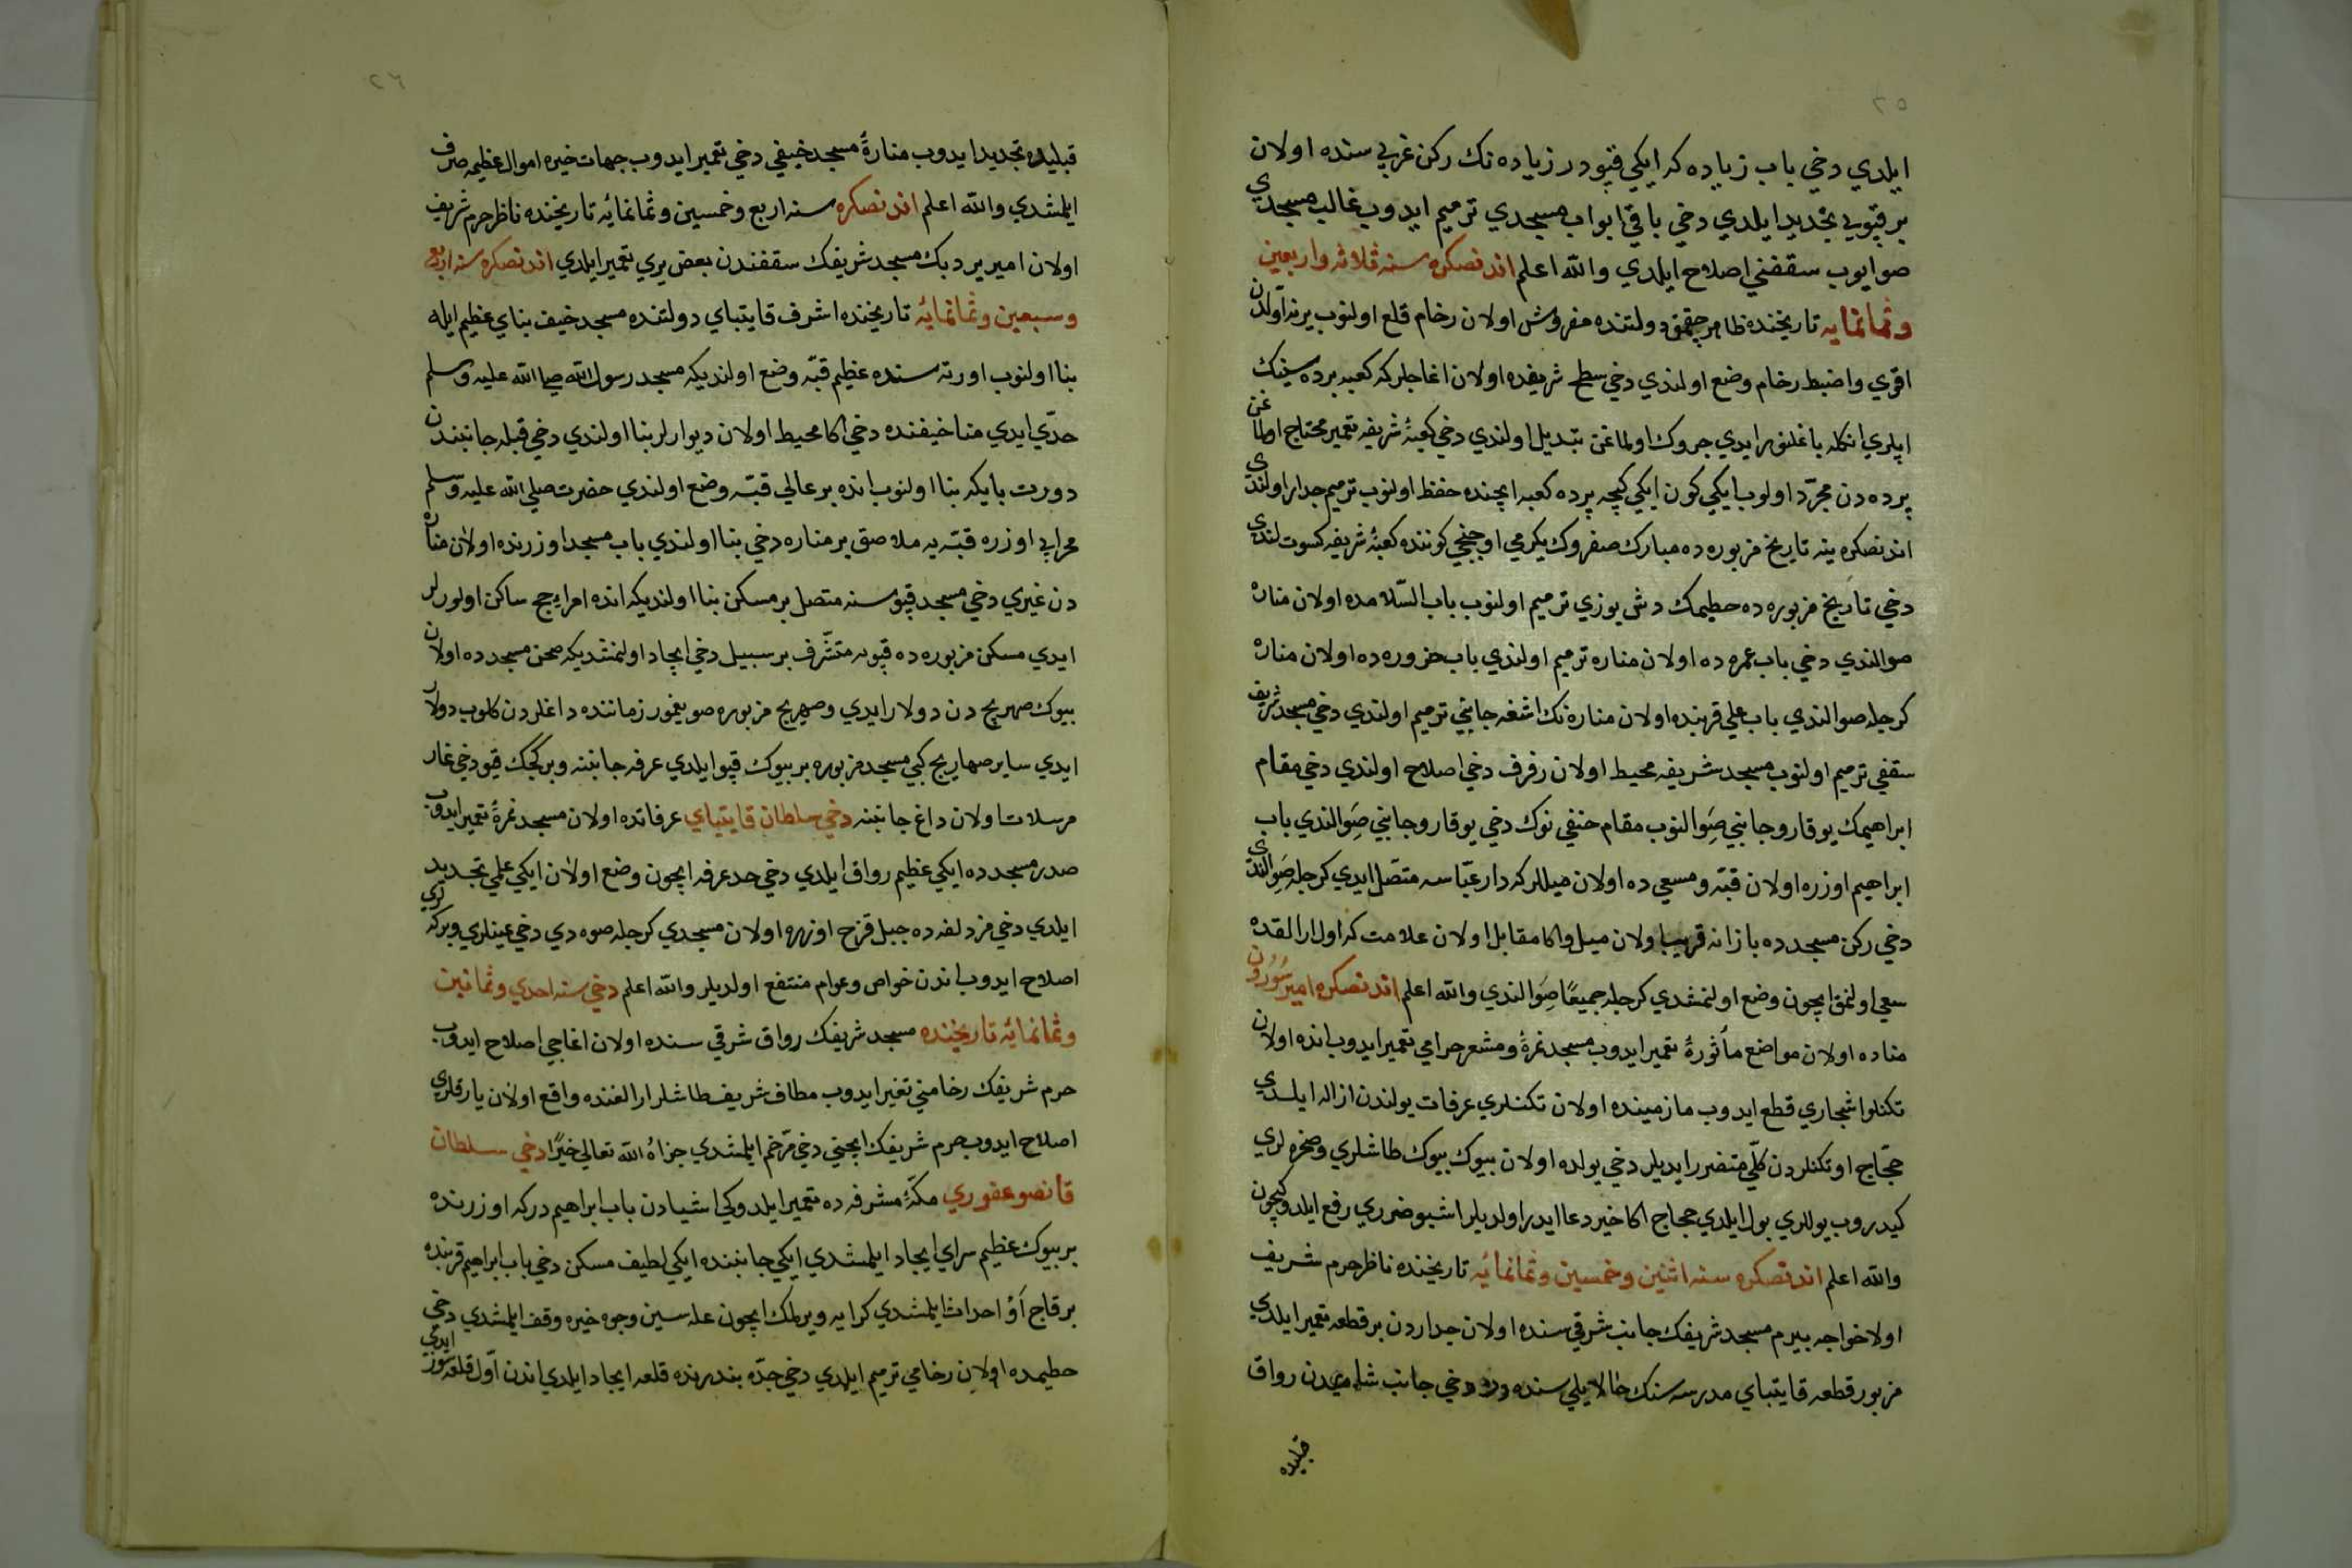 ٢٥
ايلدي دخي باب زياده كه ايكي قپودر زياده نك ركن غربي سنده اولان
بر قپويي تجديد ايلدي دخي باقي ابواب مسجدي ترميم ايدوب غالب مسجدي
صوايوب سقفني اصلاح ايلدي والله اعلم اندنصكره سنه ثلاثه واربعين
وثمانمايه تاريخنده ظاهر چقمق دولتنده مفروش اولان رخام قلع اولنوب يرنه اولدن
اقوي واضبط رخام وضع اولندي دخي سطح شريفده اولان اغاجلر كه كعبه پرده سينك
ايپلري انكله باغلنور ايدي چروك اولماغن تبديل اولندي دخي كعبۀ شريفه تعمير محتاج اولماغن
پرده دن مجرّد اولوب ايكي كون ايكي كيجه پرده كعبه ايچنده حفظ اولنوب ترميم جدار اولندي
اندنصكره ينه تاريخ مزبوره ده مبارك صفروك يكرمي اوچنجي كوننده كعبۀ شريفه كسوت لندي
دخي تاريخ مزبوره ده حطيمك دش يوزي ترميم اولنوب باب السّلامده اولان مناره
صوالندي دخي باب عمره ده اولان مناره ترميم اولندي باب حزوره ده اولان مناره
كرجله صوالندي باب علي قربنده اولان مناره نك اشغه جانبي ترميم اولندي دخي مسجد شريف
سقفي ترميم اولنوب مسجد شريفه محيط اولان رفرف دخي اصلاح اولندي دخي مقام
ابراهيمك يوقارو جانبي صوالنوب مقام حنفي نوك دخي يوقارو جانبي صوالندي باب
ابراهيم اوزره اولان قبّه ومسعي ده اولان ميللر كه دار عبّاسه متصّل ايدي كرجله صوالندي
دخي ركن مسجد ده بازانه قريب اولان ميل واكا مقابل اولان علامت كه اول ارالقده
سعي اولنمق ايچون وضع اولنمشدي كرجله جميعًا صوالندي والله اعلم اندنصكره امير سودون
مناده اولان مواضع مأثورۀ تعمير ايدوب مسجد نمرۀ ومشعر حرامي تعمير ايدوب انده اولان
تكنلو اشجاري قطع ايدوب مازمينده اولان تكنلري عرفات يولندن ازاله ايلدي
حجّاج او تكنلردن كلّي متضرر ايديلر دخي يولده اولان بيوك بيوك طاشلري وصخره لري
كيدروب يوللري بول ايلدي حجاج اكا خير دعا ايدر اولديلر اشبو ضرري رفع ايلدوكيچون
والله اعلم اندنصكره سنه اثنين وخمسين وثمانمائه تاريخنده ناظر حرم شريف
اولا خواجه بيرم مسجد شريفك جانب شرقي سنده اولان جداردن بر قطعه تعمير ايلدي
مزبور قطعه قايتباي مدرسه سنك حالا يلي سنده در دخي جانب شاميدن رواق
قبليده
٢٦
قبليده تجديد ايدوب منارۀ مسجد خيفي دخي تعمير ايدوب جهات خيره اموال عظيمه صرف
ايلمشدي والله اعلم اندنصكره سنه اربع وخمسين وثمانمائه تاريخنده ناظر حرم شريف
اولان امير بردبك مسجد شريفك سقفندن بعض يري تعمير ايلدي اندنصكره سنه اربع
وسبعين وثمانمائه تاريخنده اشرف قايتباي دولتنده مسجد خيف بناي عظيم ايله
بنا اولنوب اورته سنده عظيم قبّه وضع اولنديكه مسجد رسول الله صلي الله عليه وسلم
حدّي ايدي منا خيفنده دخي اكا محيط اولان ديوارلر بنا اولندي دخي قبله جانبندن
دورت بايكه بنا اولنوب انده بر عالي قبّه وضع اولندي حضرت صلي الله عليه وسلم
محرابي اوزره قبّه يه ملاصق بر مناره دخي بنا اولندي باب مسجد اوزرنده اولان مناره
دن غيري دخي مسجد قپوسنه متصل بر مسكن بنا اولنديكه انده امراء حج ساكن اولورلر
ايدي مسكن مزبوره ده قپويه متشرف بر سبيل دخي ايجاد اولنمشديكه صحن مسجد ده اولان
بيوك صهريج دن دولار ايدي وصهريج مزبوره صو يغمور زماننده داغلردن كلوب دولار
ايدي ساير صهاريج كبي مسجد مزبوره بر بيوك قپو ايلدي عرفه جانبنه وبر كجك قپو دخي غار
مرسلات اولان داغ جانبنه دخي سلطان قايتباي عرفاتده اولان مسجد نمرۀ تعمير ايدوب
صدر مسجد ده ايكي عظيم رواق ايلدي دخي حد عرفه ايچون وضع اولان ايكي علمي تجديد
ايلدي دخي مزدلفه ده جبل قزح اوزره اولان مسجدي كرجله صوه دي دخي عينلري وبركه لري
اصلاح ايدوب اندن خواص وعوام منتفع اولديلر والله اعلم دخي سنه احدي وثمانين
وثمانمائه تاريخنده مسجد شريفك رواق شرقي سنده اولان اغاجي اصلاح ايدوب
حرم شريفك رخامني تغير ايدوب مطاف شريف طاشلر ارالغنده واقع اولان يارقلري
اصلاح ايدوب حرم شريفك ايچني دخي مرّخم ايلمشدي جزاهُ الله تعالي خيرًا دخي سلطان
قانصو غوري مكّۀ مشرفه ده تعمير ايلدوكي اشيادن باب ابراهيم در كه اوزرنده
بر بيوك عظيم سراي ايجاد ايلمشدي ايكي جانبنده ايكي لطيف مسكن دخي باب ابراهيم قربنده
بر قاج اَوْ احداث ايلمشدي كرايه ويرلمك ايچون عله سين وجوه خيره وقف ايلمشدي دخي
حطيمده اولان رخامي ترميم ايلدي دخي جدّه بندرنده قلعه ايجاد ايلدي اندن اوّل قلعه سوز ايدي